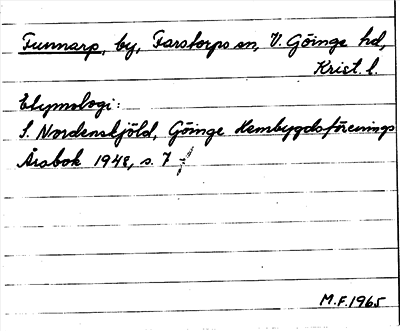 Funnarp, by, Farstorps sn, V. Göinge hd,
Krist. l.
Etymologi:
S. Nordenskjöld, Göinge Hembygdsförenings
Årsbok 1948, s. 7
M.F. 1965